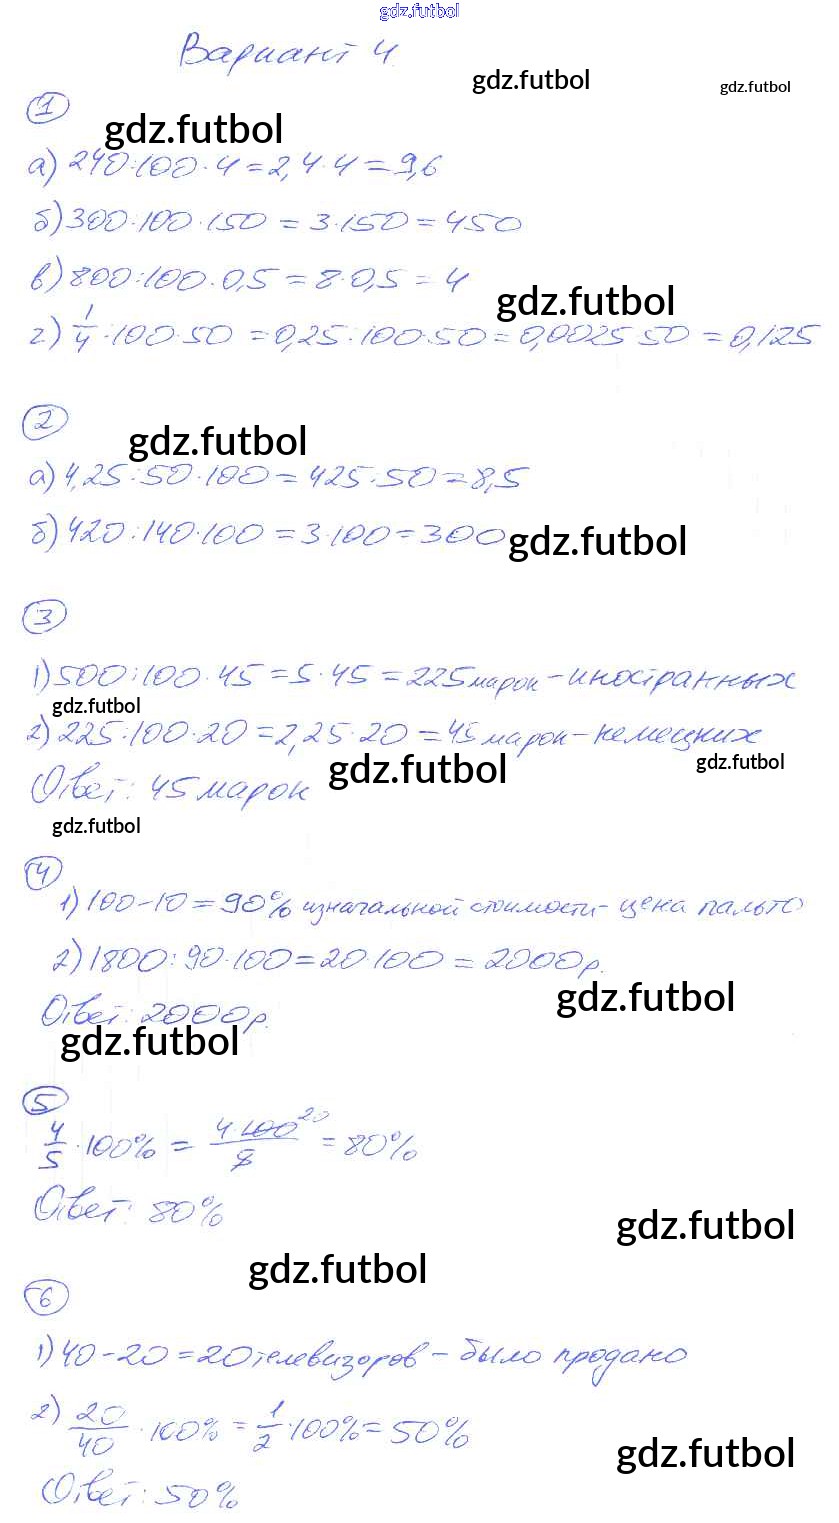 gdz.futbol
Вариант 4
gdz.futbol
gdz.futbol
1
gdz.futbol
а) 240:100·4=2,4·4=9,6
б) 300:100·150=3·150=450
в) 800:100·0,5=8·0,5=4
gdz.futbol
г) 1/4:100·50=0,25:100·50=0,0025·50=0,125
2
gdz.futbol
а) 4,25:50·100=425:50=8,5
б) 420:140·100=3·100=300
gdz.futbol
3
1) 500:100·45=5·45=225 марок - иностранных
gdz.futbol
2) 225:100·20=2,25·20=45 марок - немецких
gdz.futbol
gdz.futbol
Ответ: 45 марок
gdz.futbol
4
1) 100-10=90% изначальной стоимости - цена пальто
2) 1800:90·100=20·100=2000р.
gdz.futbol
Ответ: 2000р.
gdz.futbol
5
4/5·100%=4·100/5 20=80%
Ответ: 80%
gdz.futbol
gdz.futbol
6
1) 40-20=20 телевизоров - было продано
2) 20/40·100%=1/2·100%=50%
gdz.futbol
Ответ: 50%